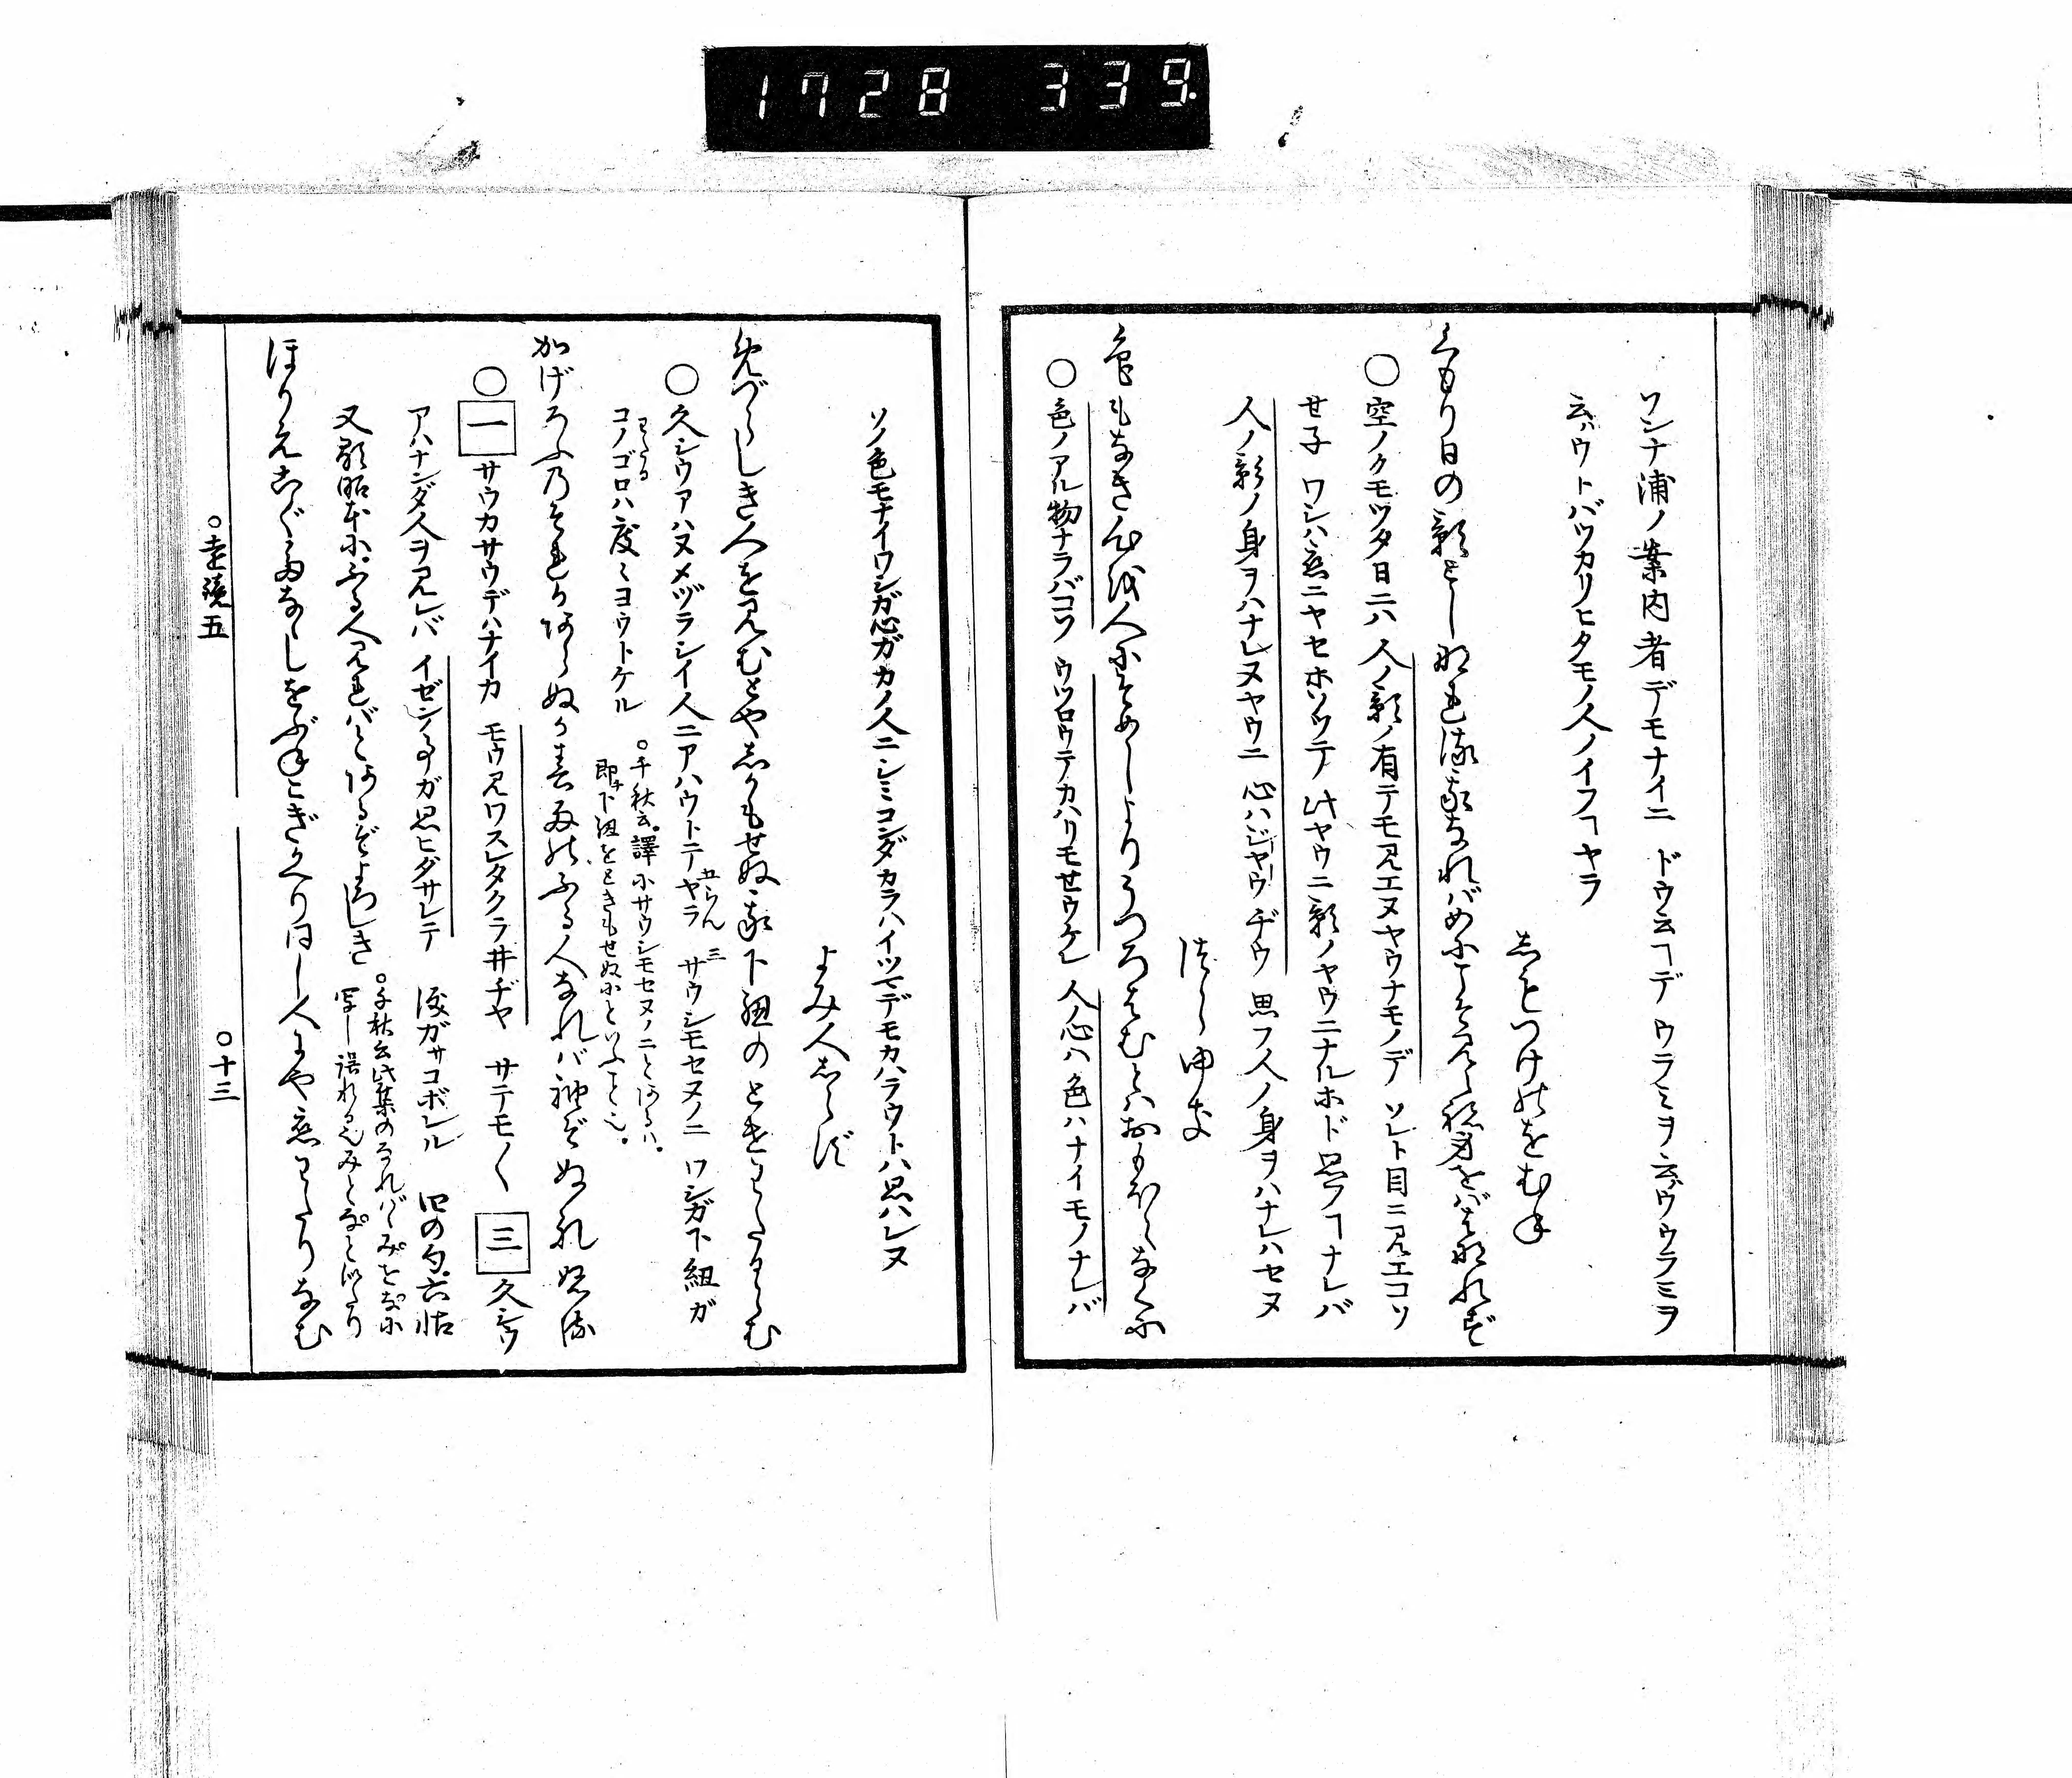 1728 339
ワシナ浦ノ案内者デモナイニ ドウ云ヿデ ウラミヲ云ハウウラミヲ
云ハウトバツカリヒタモノ人ノイフヿヤラ
しもつけのをむね
くもり日の影としなれる我なればめにこそみえね身をばはなれず
○空ノクモツタ日ニハ 人ノ影ノ有テモ見エヌヤウナモノデ ソレト目ニ見エコソ
セ子 ワシハ恋ニヤセホソツテ 此ヤウニ影ノヤウニナルホド思フヿナレバ
人ノ影ノ身ヲハナレヌヤウニ 心ハジヤウヂウ 思フ人ノ身ヲハナレハセヌ
つらゆき
色もなき心を人にそめしよりうつろはむとはおもほえなくに
○色ノアル物ナラバコソ ウツロウテカハリモセウケレ 人ノ心ハ色ハナイモノナレバ
ソノ色モナイワシガ心ガカノ人ニシミコンダカラハイツマデモカハラウトハ思ハレヌ
よみ人しらず
めづらしき人を見むとやしかもせぬ我下紐のとけわたるらむ
○久シウアハヌメヅラシイ人ニアハウトテヤラ らん 三 サウシモセヌノニ ワシガ下紐ガ
わたる
コノゴロハ度々ヨウトケル ○千秋云。譯にサウシモセヌノニとあるハ。
即チ下紐をときもせぬにといふこと也。
かげろふのそれかあらぬか春雨のふる人なれば袖ぞぬれぬる
○一サウカサウデハナイカ モウ見ワスレタクラ井ヂヤ サテモ〳〵 三久シウ
アハナンダ人ヲ見レバ イゼンノ事ガ思ヒダサレテ 涙ガサコボレル 四の句六帖
又顕昭本に。ふる人見ればとあるぞよろしき ○千秋云此集のなれば
ほりえこぐたななしをぶねこぎかへりおなし人にや恋わたりなむ
○遠鏡五
○十三